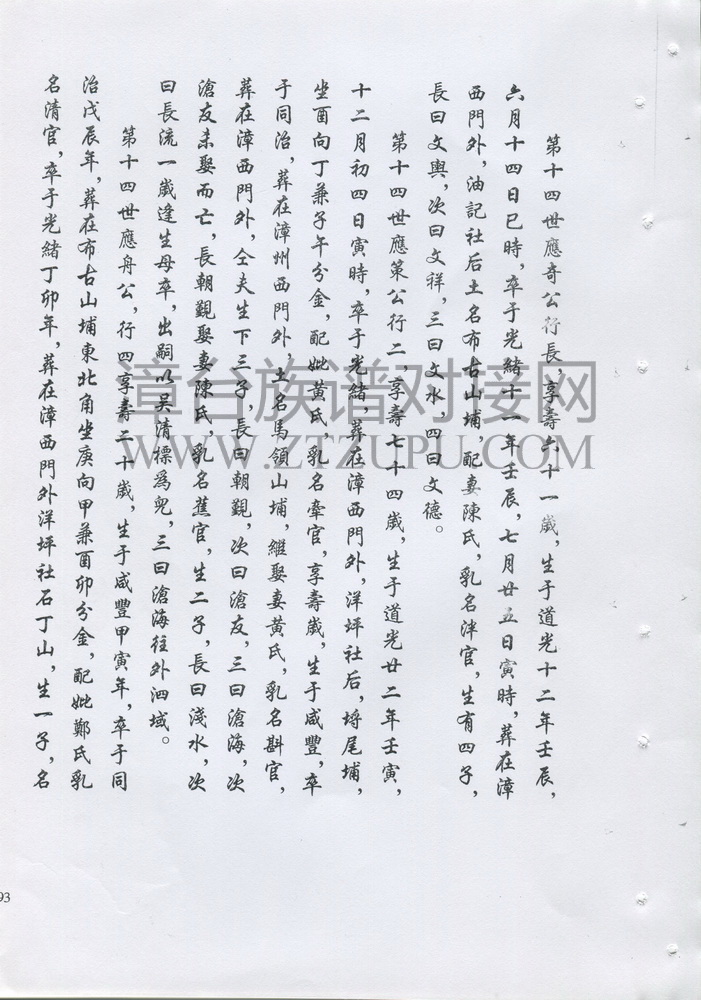 第十四世應奇公行長，享壽六十一歲，生于道光十二年壬辰，
六月十四日巳時，卒于光緒十一年壬辰，七月廿五日寅時，葬在漳
西門外，油記社后土名布古山埔，配妻陳氏，乳名泮官，生有四子，
長曰文輿，次曰文祥，三曰文水，四曰文德。
第十四世應策公行二，享壽七十四歲，生于道光廿二年壬寅，
十二月初四日寅時，卒于光緒，葬在漳西門外，洋坪社后，埒尾埔，
坐酉向丁兼子午分金，配妣黃氏，乳名牽官，享壽歲，生于咸豐，卒
于同治，葬在漳州西門外，土名馬領山埔，繼娶妻黃氏，乳名斟官，
葬在漳西門外，仝夫生下三子，長曰朝觀，次曰滄友，三曰滄海，次
滄友未娶而亡，長朝觀娶妻陳氏，乳名蕉官，生二子，長曰淺水，次
曰長流一歲逢生母卒，出嗣以吴清標為兒，三曰滄海往外泗域。
第十四世應舟公，行四享壽二十歲，生于咸豐甲寅年，卒于同
治戊辰年，葬在布古山埔東北角坐庚向甲兼酉卯分金，配妣鄭氏乳
名清官，卒于光緒丁卯年，葬在漳西門外洋坪社石丁山，生一子，名
漳台族谱对接网
WWW.ZTZUPU.COM
93